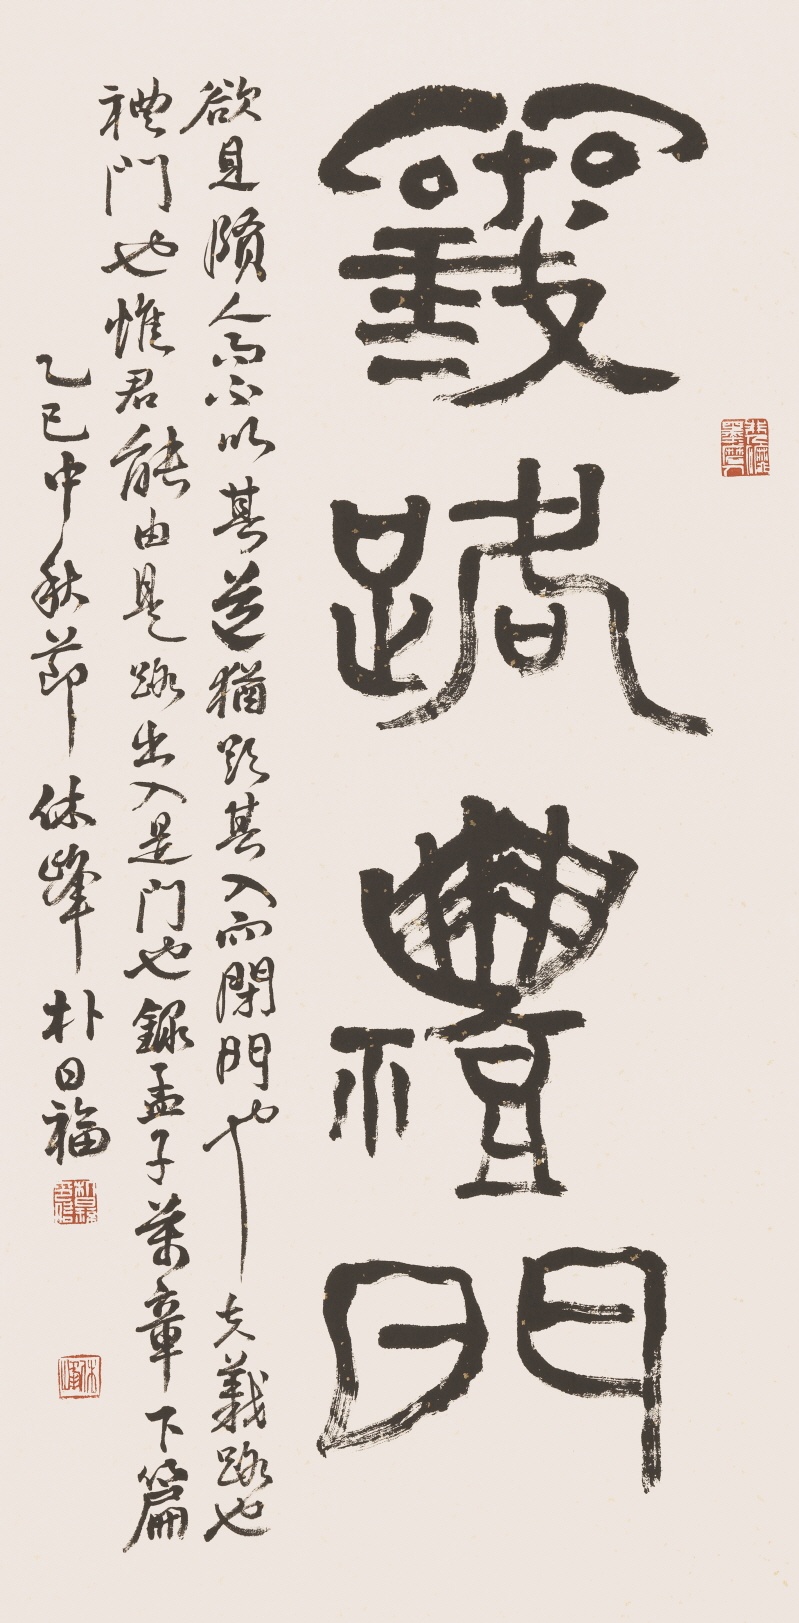 義路禮門
欲見賢人而不以其道猶欲其入而閉門也夫義路也
禮門也惟君能由是路出入是門也錄孟子萬章下篇
乙巳中秋節休峯朴日福